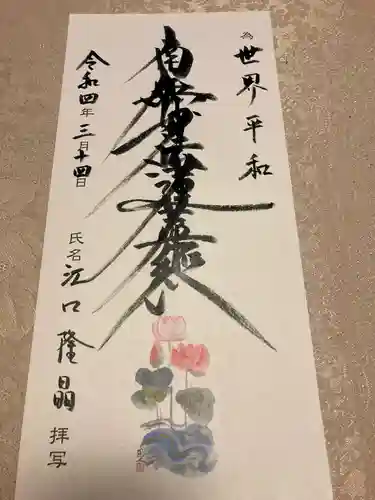 為 世界平和
南無妙法蓮華経
令和四年三月十四日
氏名 江口隆晶 拝写